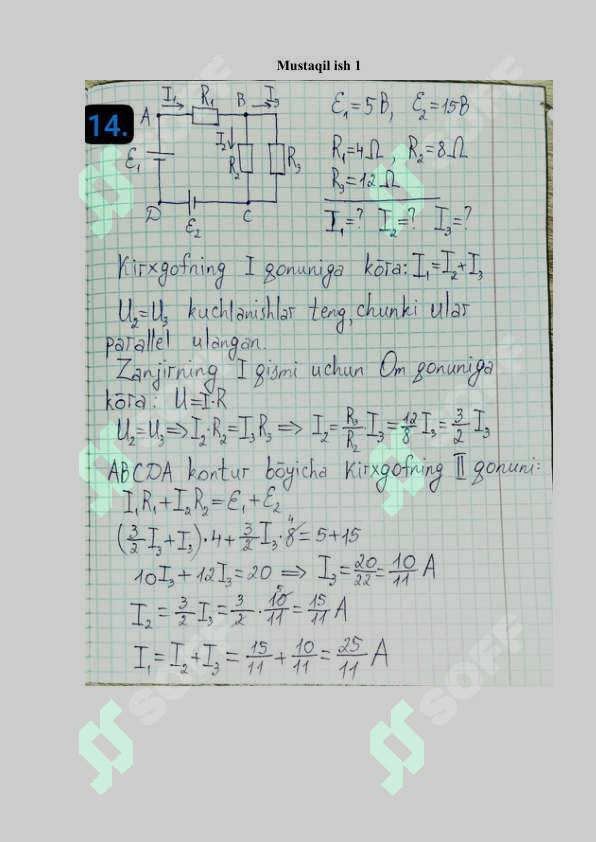 Mustaqil ish 1
14.
I₁ R₁ B I₃
A
I₂
ℰ₁ R₂ R₃
D ℰ₂ C
ℰ₁=5B, ℰ₂=15B
R₁=4Ω, R₂=8Ω
R₃=12Ω
I₁=? I₂=? I₃=?
Kirxgofning I qonuniga ko̅ra: I₁=I₂+I₃
U₂=U₃ kuchlanishlar teng, chunki ular
parallel ulangan.
Zanjirning I qismi uchun Om qonuniga
ko̅ra: U=I·R
U₂=U₃⇒I₂·R₂=I₃R₃ ⇒ I₂=R₃/R₂ I₃=12/8 I₃=3/2 I₃
ABCDA kontur bo̅yicha Kirxgofning II qonuni:
I₁R₁+I₂R₂=ℰ₁+ℰ₂
(3/2 I₃+I₃)·4+3/2 I₃·8⁴=5+15
10I₃+12I₃=20 ⇒ I₃=20/22=10/11 A
I₂=3/2 I₃=3/2·10⁵/11=15/11 A
I₁=I₂+I₃=15/11+10/11=25/11 A
SOFF
SOFF
SOFF
SOFF
SOFF
SOFF